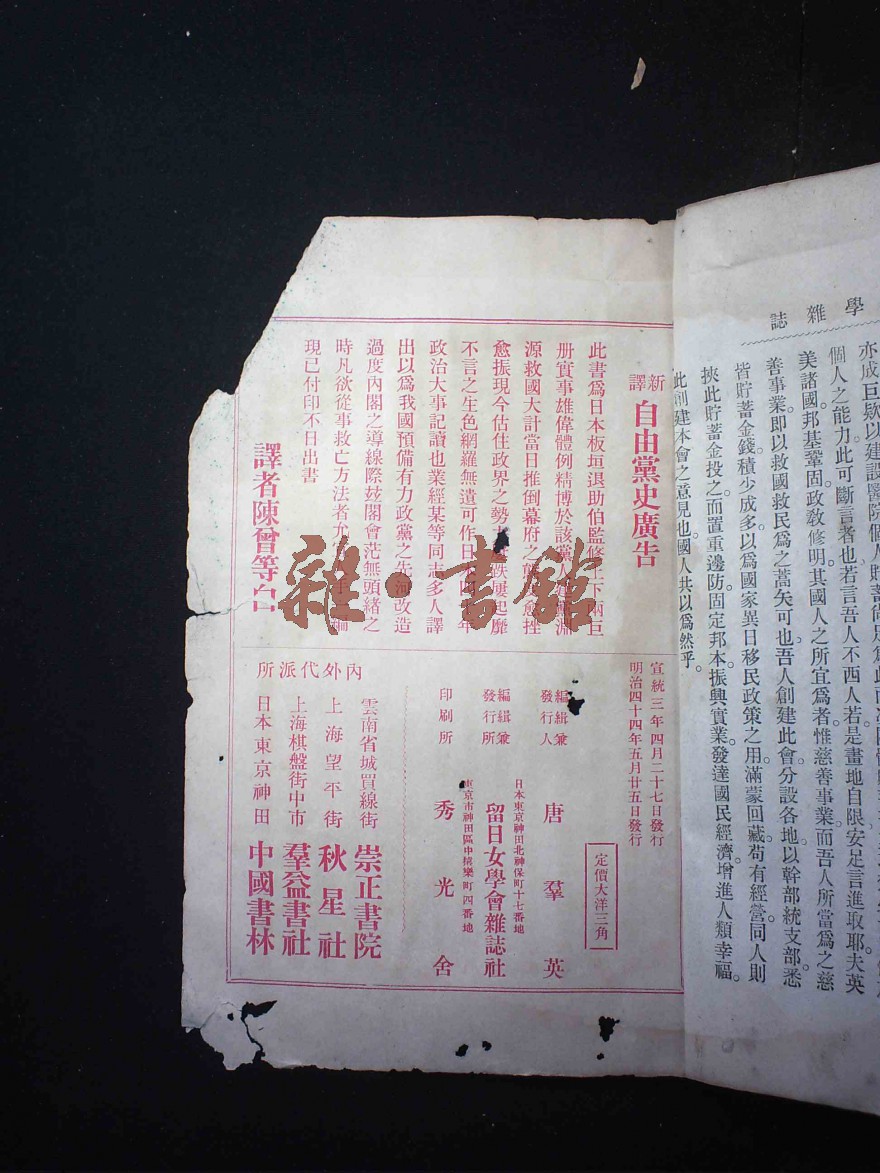 學雜誌
亦成巨欵以建設醫院個人貯蓄尚足爲此
個人之能力此可斷言者也若言吾人不西人若是畫地自限安足言進取耶夫英
美諸國邦基鞏固政敎修明其國人之所宜爲者惟慈善事業而吾人所當爲之慈
善事業卽以救國救民爲之蒿矢可也吾人創建此會分設各地以幹部統支部悉
皆貯蓄金錢積少成多以爲國家異日移民政策之用滿蒙回藏苟有經營同人則
挾此貯蓄金投之而置重邊防固定邦本振興實業發達國民經濟增進人類幸福。
此創建本會之意見也國人共以爲然乎。
新譯 自由黨史廣告
此書爲日本板垣退助伯監修上下兩巨
册實事雄偉體例精博於該黨人
源救國大計當日推倒幕府之 愈挫
愈振現今佔住政界之勢 跌屢起靡
不言之生色網羅無遺可作日 年
政治大事記讀也業經某等同志多人譯
出以爲我國預備有力政黨之先河改造
過度內閣之導線際茲閣會茫無頭緒之
時凡欲從事救亡方法者允 手 編
現已付印不日出書
譯者陳曾等白
宣統三年四月二十七日發行
明治四十四年五月廿五日發行
定價大洋三角
編緝兼發行人 唐羣英
日本東京神田北神保町十七番地
編緝兼發行所 留日女學會雜誌社
東京市神田區中猿樂町四番地
印刷所 秀光舍
內外代派所
雲南省城買線街 崇正書院
上海望平街 秋星社
上海棋盤街中市 羣益書社
日本東京神田 中國書林
雜·書館